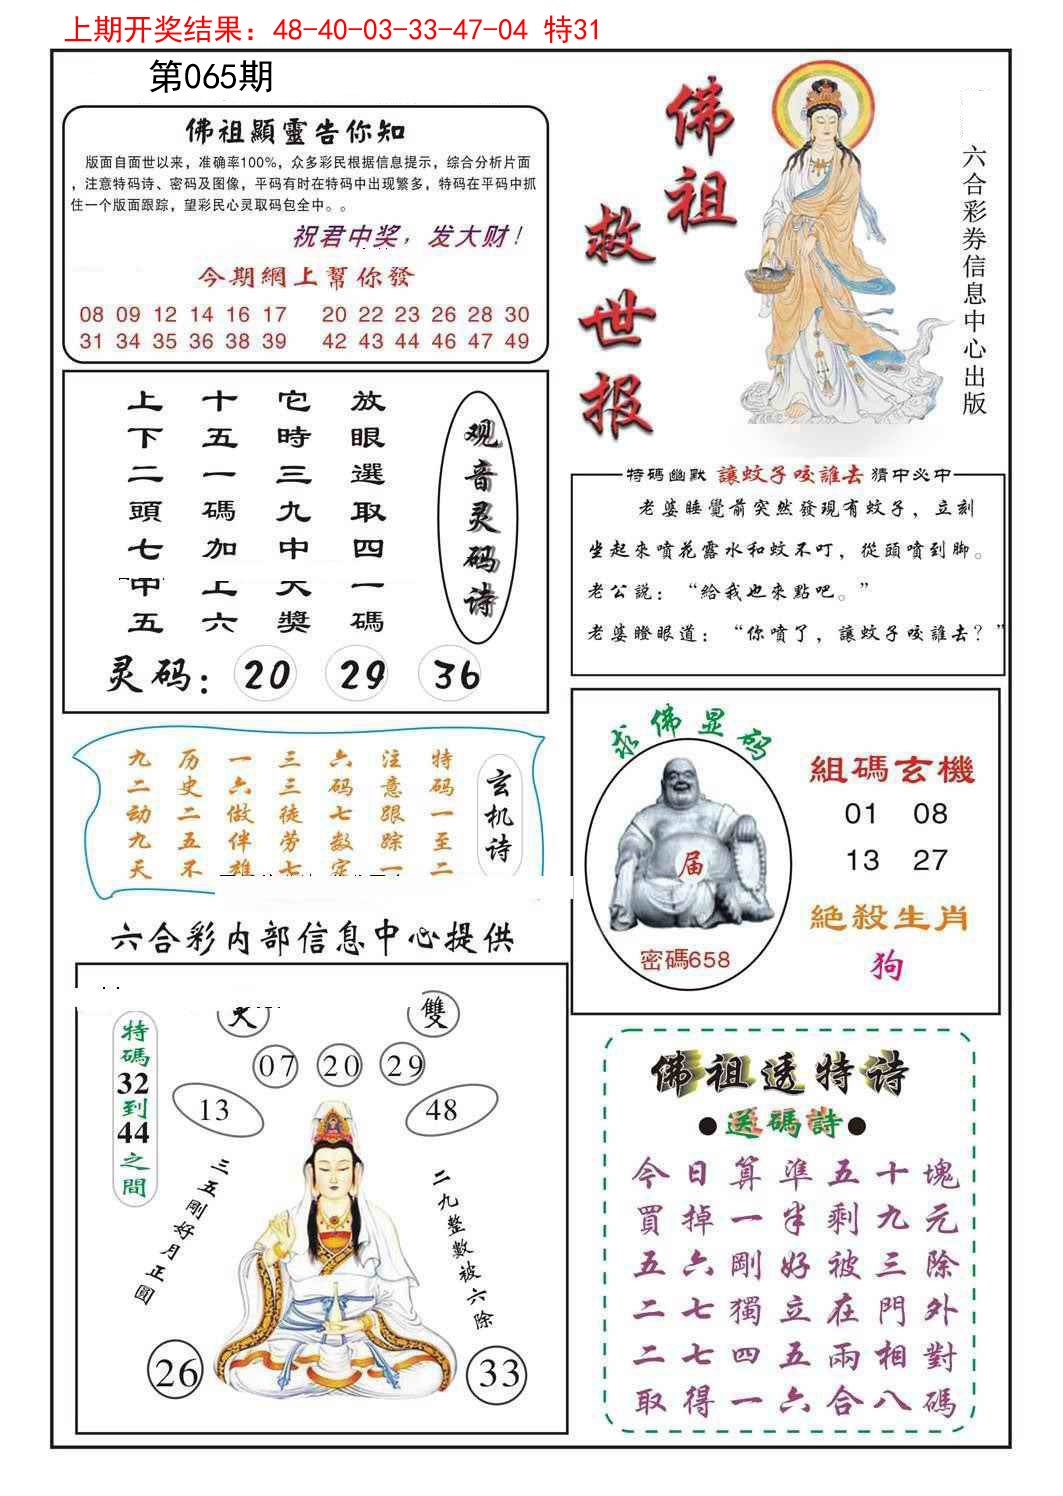 上期开奖结果：48-40-03-33-47-04 特31
第065期
佛祖顯靈告你知
版面自面世以来，准确率100%，众多彩民根据信息提示，综合分析片面
，注意特码诗、密码及图像，平码有时在特码中出现繁多，特码在平码中抓
住一个版面跟踪，望彩民心灵取码包全中。。
祝君中奖，发大财！
今期網上幫你發
08 09 12 14 16 17 20 22 23 26 28 30
31 34 35 36 38 39 42 43 44 46 47 49
佛祖
救世报
六合彩券信息中心出版
观音灵码诗
放眼選取四一碼
它時三九中大獎
十五一碼加上六
上下二頭七中五
灵码：20 29 36
特碼幽默 讓蚊子咬誰去 猜中必中
老婆睡覺前突然發現有蚊子，立刻
坐起來噴花露水和蚊不叮，從頭噴到脚。
老公説：“給我也來點吧。”
老婆瞪眼道：“你噴了，讓蚊子咬誰去？”
玄机诗
特码一至二
注意跟踪一
六码七数定
三三徒劳七
一六做伴雄
历史二五不
九二动九天
求佛显码
届
密碼658
組碼玄機
01 08
13 27
絕殺生肖
狗
六合彩内部信息中心提供
雙
07 20 29
13 48
特碼32到44之間
三五剛好月正圓
二九整數被六除
26 33
佛祖透特诗
●送碼詩●
今日算準五十塊
買掉一半剩九元
五六剛好被三除
二七獨立在門外
二七四五兩相對
取得一六合八碼